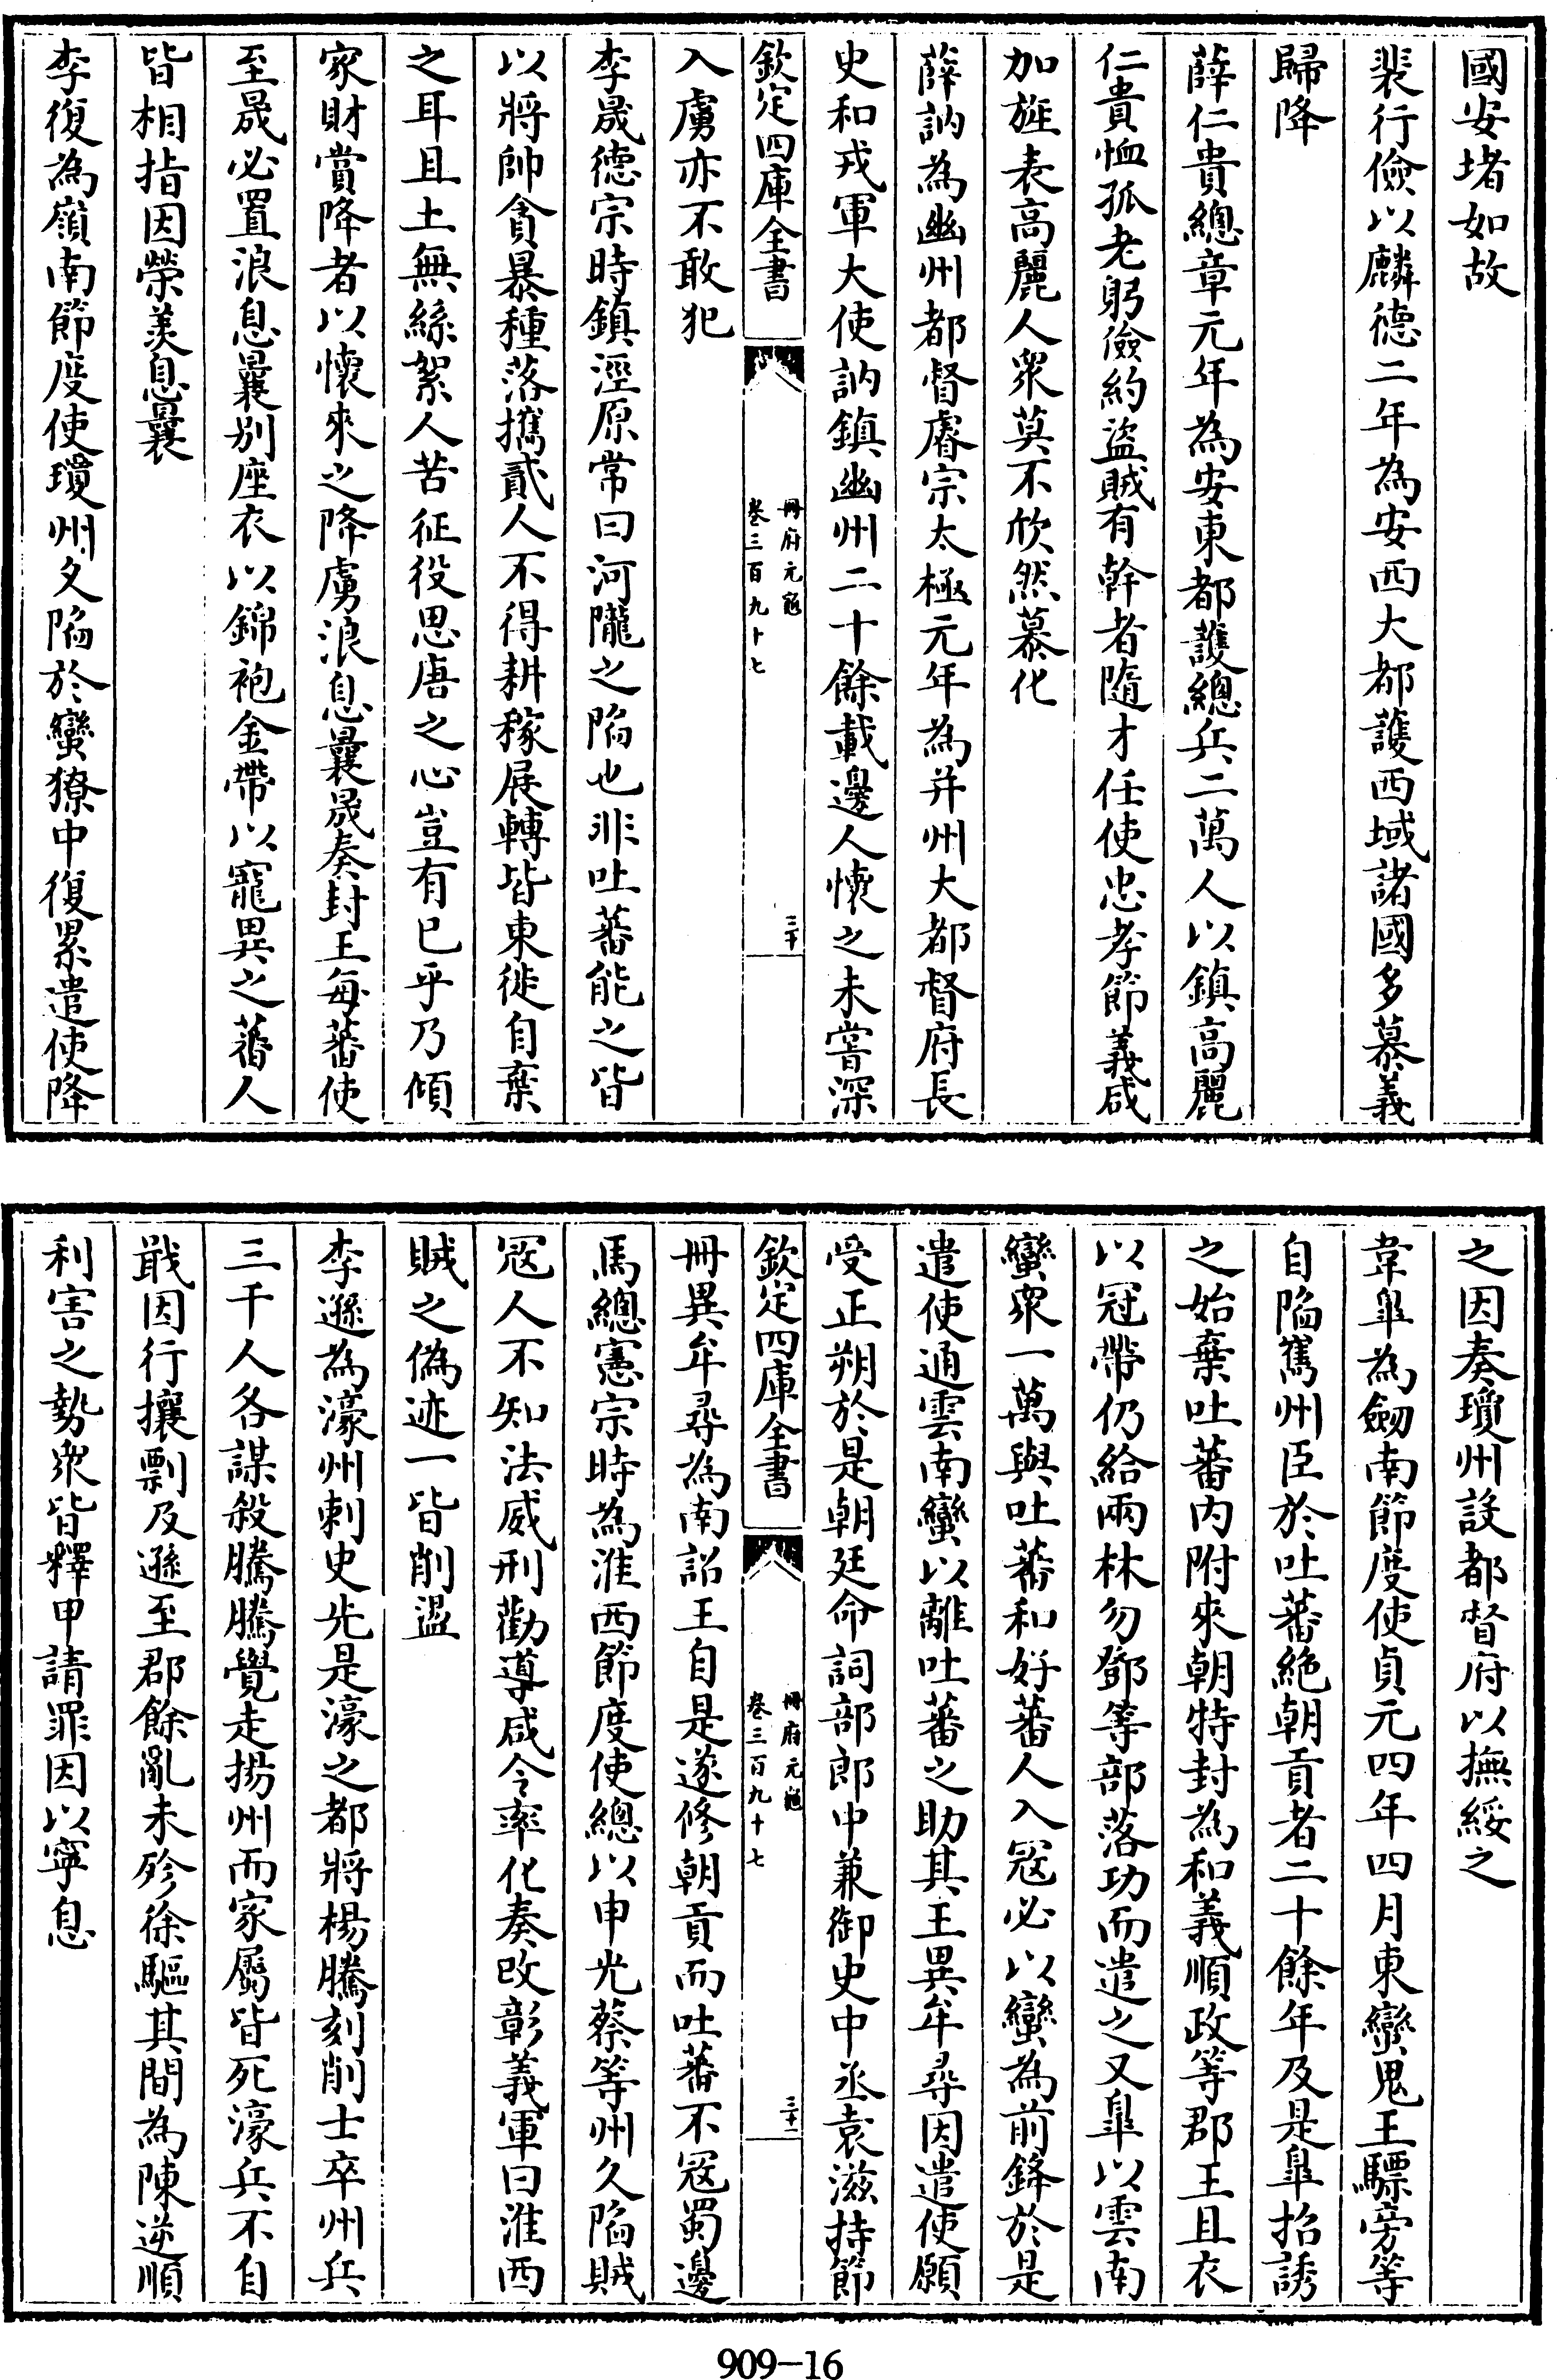 國安堵如故
裴行儉以麟德二年為安西大都護西域諸國多慕義
歸降
薛仁貴總章元年為安東都護總兵二萬人以鎮高麗
仁貴恤孤老躬儉約盜賊有幹者隨才任使忠孝節義咸
加旌表高麗人衆莫不欣然慕化
薛訥為幽州都督睿宗太極元年為并州大都督府長
史和戎軍大使訥鎮幽州二十餘載邊人懷之未嘗深
欽定四庫全書
冊府元龜
卷三百九十七
三十
入虜亦不敢犯
李晟德宗時鎮涇原常曰河隴之陷也非吐蕃能之皆
以將帥貪暴種落攜貳人不得耕稼展轉皆東徙自棄
之耳且土無絲絮人苦征役思唐之心豈有已乎乃傾
家財賞降者以懷來之降虜浪息曩晟奏封王每蕃使
至晟必置浪息曩别座衣以錦袍金帶以寵異之蕃人
皆相指因榮羡息曩
李復為嶺南節度使瓊州久陷於蠻獠中復累遣使降
之因奏瓊州設都督府以撫綏之
韋臯為劒南節度使貞元四年四月東蠻鬼王驃旁等
自陷巂州臣於吐蕃絶朝貢者二十餘年及是臯招誘
之始棄吐蕃内附來朝特封為和義順政等郡王且衣
以冠帶仍給兩林勿鄧等部落功而遣之又臯以雲南
蠻衆一萬與吐蕃和好蕃人入冦必以蠻為前鋒於是
遣使通雲南蠻以離吐蕃之助其王異牟尋因遣使願
受正朔於是朝廷命詞部郎中兼御史中丞袁滋持節
欽定四庫全書
冊府元龜
卷三百九十七
三十一
冊異牟尋為南詔王自是遂修朝貢而吐蕃不冦蜀邊
馬總憲宗時為淮西節度使總以申光蔡等州久陷賊
冦人不知法威刑勸導咸令率化奏改彰義軍曰淮西
賊之偽迹一皆削盪
李遜為濠州刺史先是濠之都將楊騰刻削士卒州兵
三千人各謀殺騰騰覺走揚州而家屬皆死濠兵不自
戢因行攘剽及遜至郡餘亂未殄徐驅其間為陳逆順
利害之勢衆皆釋甲請罪因以寧息
909-16